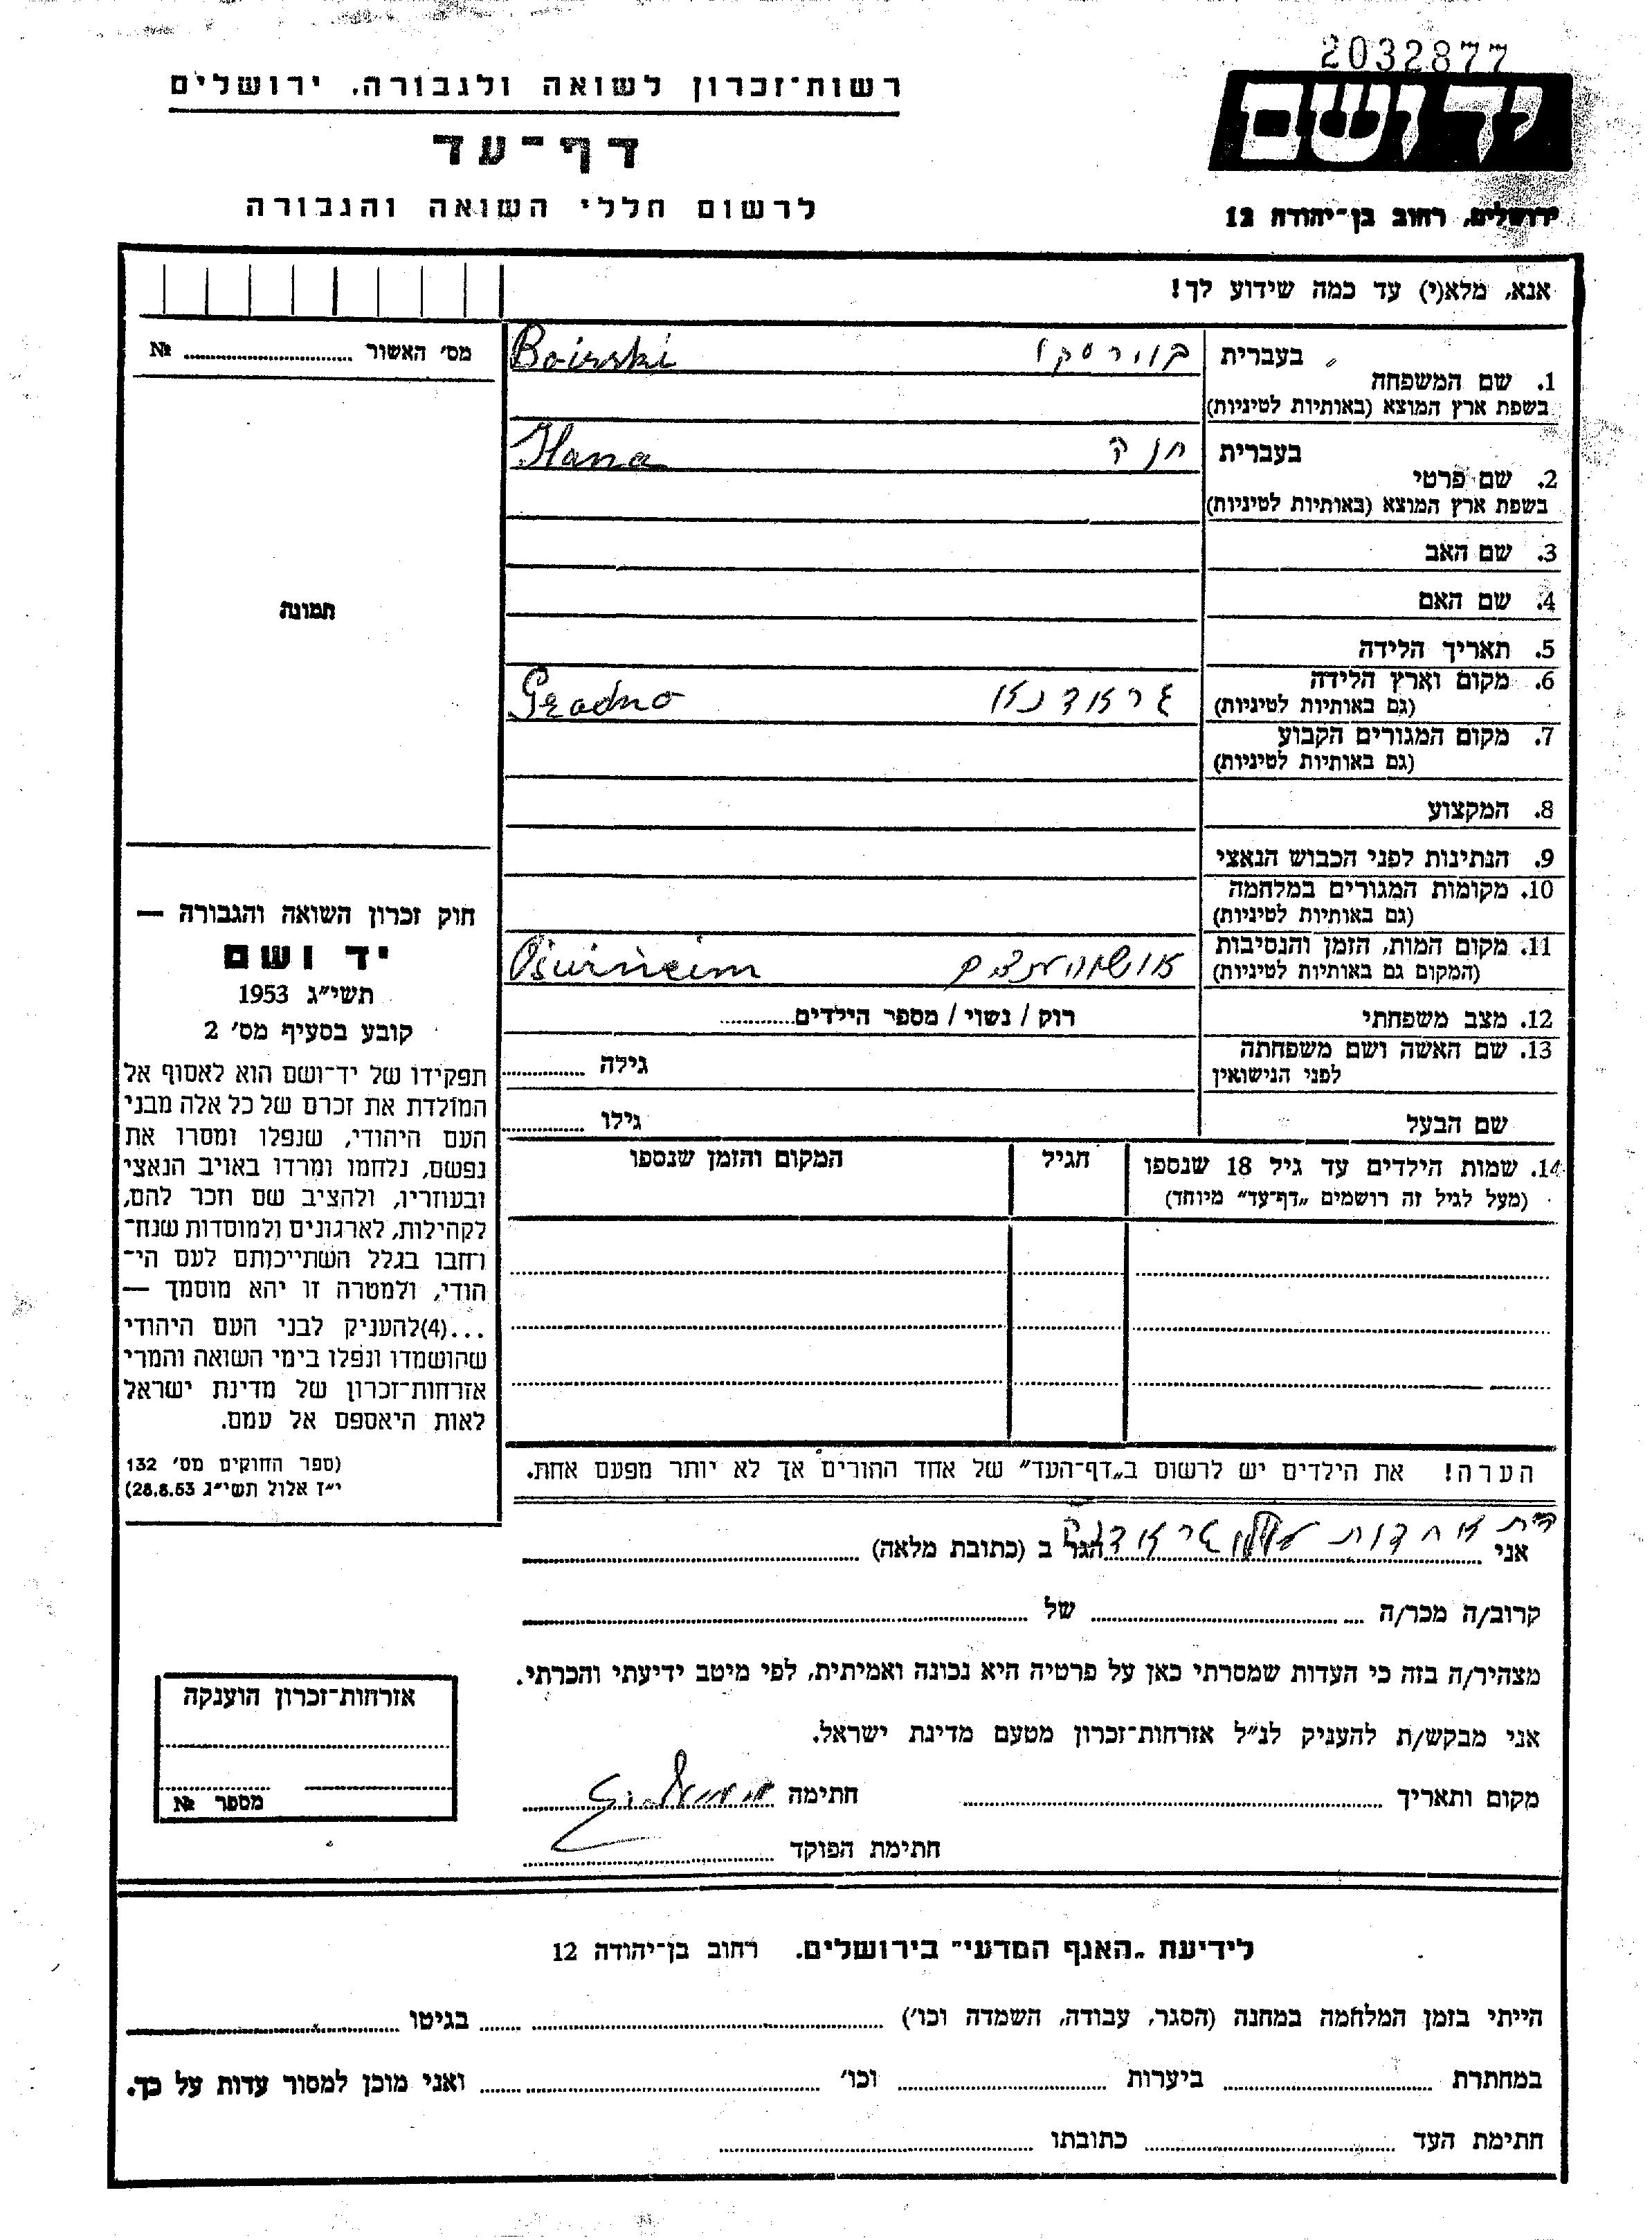 2032877
יד ושם
ירושלים, רחוב בן־יהודה 12
רשות־זכרון לשואה ולגבורה, ירושלים
דף־עד
לרשום חללי השואה והגבורה
אנא, מלא(י) עד כמה שידוע לך!
1. שם המשפחה
בעברית
בוירסקי Boirski
בשפת ארץ המוצא (באותיות לטיניות)
2. שם פרטי
בעברית
חנה Hana
בשפת ארץ המוצא (באותיות לטיניות)
3. שם האב
4. שם האם
5. תאריך הלידה
6. מקום וארץ הלידה
(גם באותיות לטיניות)
גראדנא Gradno
7. מקום המגורים הקבוע
(גם באותיות לטיניות)
8. המקצוע
9. הנתינות לפני הכבוש הנאצי
10. מקומות המגורים במלחמה
(גם באותיות לטיניות)
11. מקום המות, הזמן והנסיבות
(המקום גם באותיות לטיניות)
12. מצב משפחתי
רוק / נשוי / מספר הילדים
13. שם האשה ושם משפחתה
לפני הנישואין
גילה
שם הבעל
גילו
14. שמות הילדים עד גיל 18 שנספו
(מעל לגיל זה רושמים „דף־עד” מיוחד)
הגיל
המקום והזמן שנספו
הערה! את הילדים יש לרשום ב„דף־העד” של אחד ההורים אך לא יותר מפעם אחת.
מס׳ האשור № 
תמונה
חוק זכרון השואה והגבורה —
יד ושם
תשי״ג 1953
קובע בסעיף מס׳ 2
תפקידו של יד־ושם הוא לאסוף אל
המולדת את זכרם של כל אלה מבני
העם היהודי, שנפלו ומסרו את
נפשם, נלחמו ומרדו באויב הנאצי
ובעוזריו, ולהציב שם וזכר להם,
לקהילות, לארגונים ולמוסדות שנח־
רחבו בגלל השתייכותם לעם הי־
הודי, ולמטרה זו יהא מוסמך —
...(4)להעניק לבני העם היהודי
שהושמדו ונפלו בימי השואה והמרי
אזרחות־זכרון של מדינת ישראל
לאות היאספם אל עמם.
(ספר החוקים מס׳ 132
י״ז אלול תשי״ג 28.8.53)
אני
הגר ב (כתובת מלאה)
קרוב/ה מכר/ה של
מצהיר/ה בזה כי העדות שמסרתי כאן על פרטיה היא נכונה ואמיתית, לפי מיטב ידיעתי והכרתי.
אני מבקש/ת להעניק לנ״ל אזרחות־זכרון מטעם מדינת ישראל.
מקום ותאריך חתימה
חתימת הפוקד
אזרחות־זכרון הוענקה
מספר №
לידיעת „האגף המדעי” בירושלים. רחוב בן־יהודה 12
הייתי בזמן המלחמה במחנה (הסגר, עבודה, השמדה וכו׳) בגיטו
במחתרת ביערות וכו׳ ואני מוכן למסור עדות על כך.
חתימת העד כתובתו